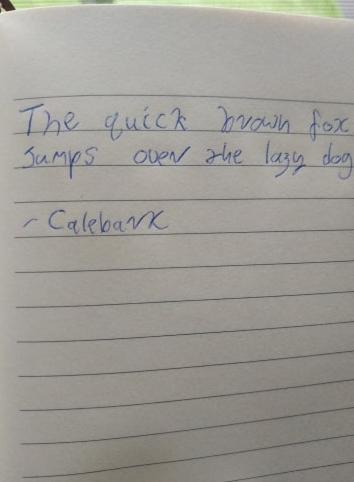 The quick brown fox
Jumps over the lazy dog
- Calebank